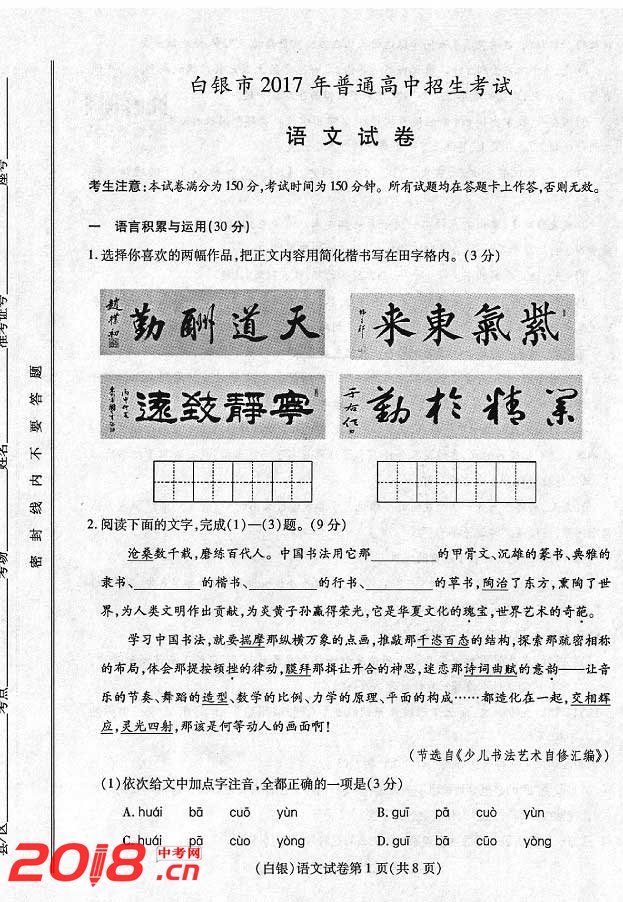 白银市2017年普通高中招生考试
语文试卷
考生注意:本试卷满分为150分,考试时间为150分钟。所有试题均在答题卡上作答,否则无效。
一 语言积累与运用(30分)
1.选择你喜欢的两幅作品,把正文内容用简化楷书写在田字格内。(3分)
勤酬道天
赵朴初
来東氣紫
遠致靜寧
勤於精業
于右任
2.阅读下面的文字,完成(1)—(3)题。(9分)
沧桑数千载,磨练百代人。中国书法用它那________的甲骨文、沉雄的篆书、典雅的
隶书、________的楷书、________的行书、________的草书,陶冶了东方,熏陶了世
界,为人类文明作出贡献,为炎黄子孙赢得荣光,它是华夏文化的瑰宝,世界艺术的奇葩。
学习中国书法,就要揣摩那纵横万象的点画,推敲那千恣百态的结构,探索那疏密相称
的布局,体会那提按顿挫的律动,膜拜那揖让开合的神思,迷恋那诗词曲赋的意韵——让音
乐的节奏、舞蹈的造型、数学的比例、力学的原理、平面的构成……都造化在一起,交相辉
应,灵光四射,那该是何等动人的画面啊!
(节选自《少儿书法艺术自修汇编》)
(1)依次给文中加点字注音,全都正确的一项是(3分)
A.huái bā cuō yùn B.guī pā cuò yùn
C.huái pā cùo yòng D.guī bā cūo yòng
(白银)语文试卷第1页(共8页)
密封线内不要答题
座号
准考证号
姓名
考场
考点
县/区
2018中考网.cn